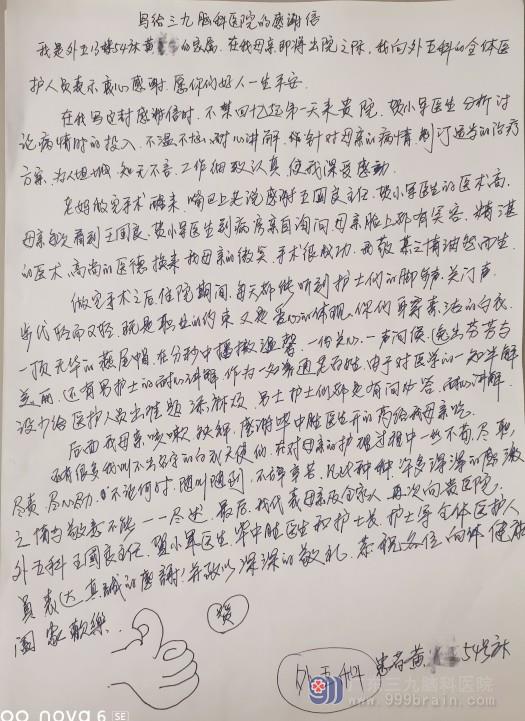 写给三九脑科医院的感谢信
我是外五13楼54床黄 的家属.在我母亲即将出院之际,我向外五科的全体医
护人员表示衷心感谢.愿你们好人一生平安.
在我写这封感谢信时,不禁回忆起第一天来贵院,贺小军医生分析讨
论病情时的投入,不温不火,耐心讲解,针对母亲的病情,制订适当的治疗
方案,为人坦诚,知无不言,工作细致认真,使我深受感动.
老妈做完手术醒来,嘴巴上是说感谢王国良主任,贺小军医生的医术高,
母亲每次看到王国良,贺小军医生到病房亲自询问,母亲脸上都有笑容.精湛
的医术,高尚的医德,换来我母亲的微笑,手术很成功,而敬慕之情油然而生.
做完手术之后,住院期间,每天都能听到护士们的脚步声,关门声
当代轻而又轻,既是职业的约束又是爱心的体现,你们身穿素洁的白衣,
一顶无华的燕尾帽,在分秒中播撒温馨,一份关心,一声问候,透出芬芳与
美丽,还有男护士的耐心讲解,作为一名普通老百姓,由于对医学的一知半解
没少给医护人员出难题添麻烦,男士护士们都是有问必答,耐心讲解.
后面我母亲咳嗽 ,感谢毕中胜医生开的药给我母亲吃.
还有很多我叫不出名字的白衣天使们,在对母亲的护理过程中一丝不苟,尽职,
尽责,尽心尽力,不论何时,随叫随到,不辞辛苦,凡此种种,许多深深的感激
之情与敬意不能一一尽述.最后,我代表母亲及全家人再次向贵医院,
外五科王国良主任,贺小军医生,毕中胜医生和护士长,护士等全体医护人
员表达真诚的感谢!并致以深深的敬礼.恭祝各位向 体健康
阖家欢乐.
赞
外五科 患者黄 54号床
广东三九脑科医院
nova 6 SE